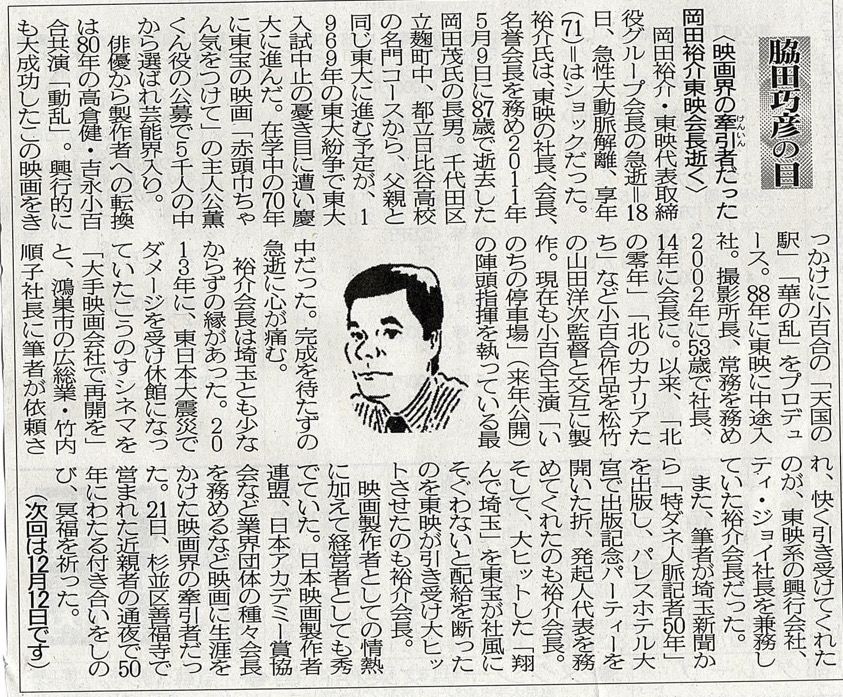 脇田巧彦の目
〈映画界の牽引者だった
けんいん
岡田裕介東映会長逝く〉
岡田裕介・東映代表取締
役グループ会長の急逝＝18
日、急性大動脈解離、享年
(71)＝はショックだった。
裕介氏は、東映の社長、会長、
名誉会長を務め2011年
5月9日に87歳で逝去した
岡田茂氏の長男。千代田区
立麹町中、都立日比谷高校
の名門コースから、父親と
同じ東大に進む予定が、1
969年の東大紛争で東大
入試中止の憂き目に遭い慶
大に進んだ。在学中の70年
に東宝の映画「赤頭巾ちゃ
ん気をつけて」の主人公薫
くん役の公募で5千人の中
から選ばれ芸能界入り。
俳優から製作者への転換
は80年の高倉健・吉永小百
合共演「動乱」。興行的に
も大成功したこの映画をき
っかけに小百合の「天国の
駅」「華の乱」をプロデュ
ース。88年に東映に中途入
社。撮影所長、常務を務め
2002年に53歳で社長、
14年に会長に。以来、「北
の零年」「北のカナリアた
ち」など小百合作品を松竹
の山田洋次監督と交互に製
作。現在も小百合主演「い
のちの停車場」(来年公開)
の陣頭指揮を執っている最
中だった。完成を待たずの
急逝に心が痛む。
裕介会長は埼玉とも少な
からずの縁があった。20
13年に、東日本大震災で
ダメージを受け休館になっ
ていたこうのすシネマを
「大手映画会社で再開を」
と、鴻巣市の広総業・竹内
順子社長に筆者が依頼さ
れ、快く引き受けてくれた
のが、東映系の興行会社、
ティ・ジョイ社長を兼務し
ていた裕介会長だった。
また、筆者が埼玉新聞か
ら「特ダネ人脈記者50年」
を出版し、パレスホテル大
宮で出版記念パーティーを
開いた折、発起人代表を務
めてくれたのも裕介会長。
そして、大ヒットした「翔
んで埼玉」を東宝が社風に
そぐわないと配給を断った
のを東映が引き受け大ヒッ
トさせたのも裕介会長。
映画製作者としての情熱
に加えて経営者としても秀
でていた。日本映画製作者
連盟、日本アカデミー賞協
会など業界団体の種々会長
を務めるなど映画に生涯を
かけた映画界の牽引者だっ
た。21日、杉並区善福寺で
営まれた近親者の通夜で50
年にわたる付き合いをしの
び、冥福を祈った。
(次回は12月12日です)